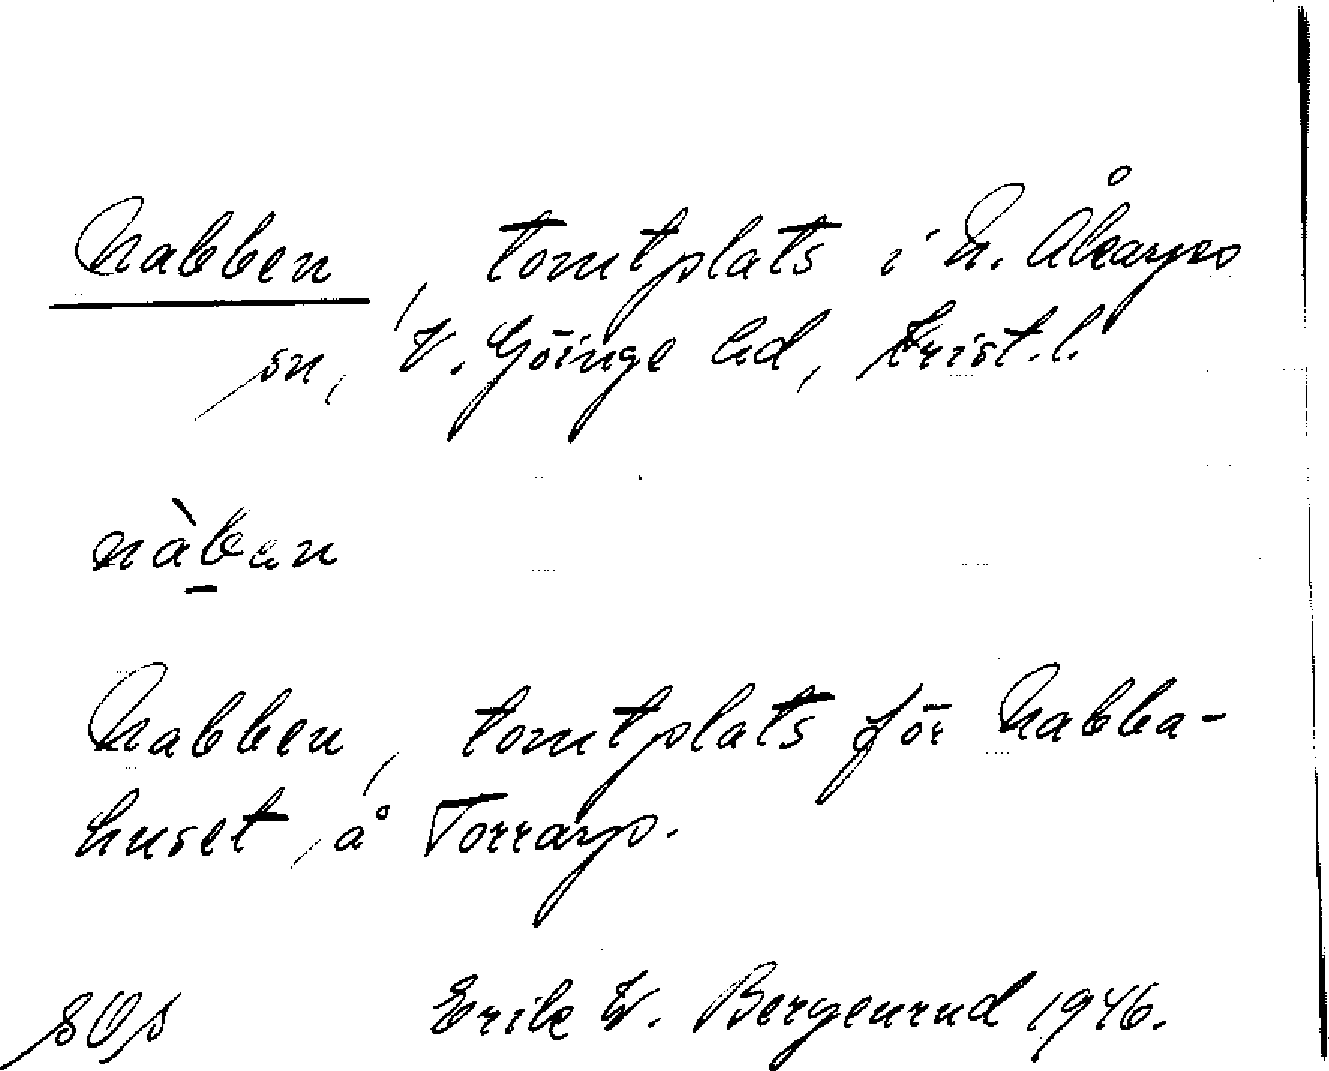 Nabben, tomtplats i N. Åkarps
sn, V. Göinge hd, Krist. l.
nàben
Nabben, tomtplats för Nabba-
huset, å Torrarp.
Erik W. Bergenrud 1946.